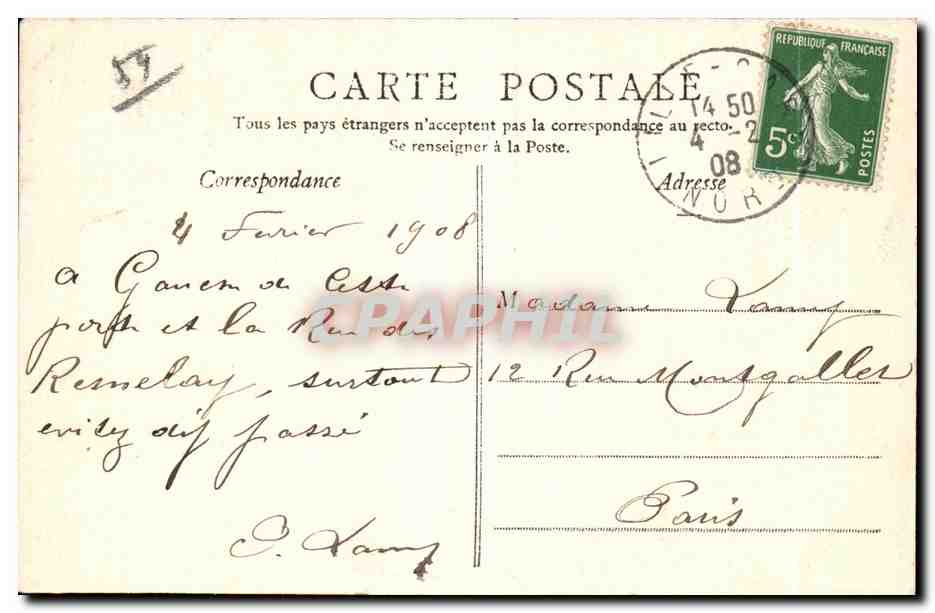 59
CARTE POSTALE
Tous les pays étrangers n'acceptent pas la correspondance au recto.
Se renseigner à la Poste.
Correspondance
Adresse
REPUBLIQUE FRANÇAISE
5c
POSTES
14 50
4 -2
08
NORD
4 Fevrier 1908
a de Cette
porte et la Rue des
, surtout
evitez d'y passé
Lamy
Madame Lamy
12 Rue Montgallet
Paris
CPAPHIL